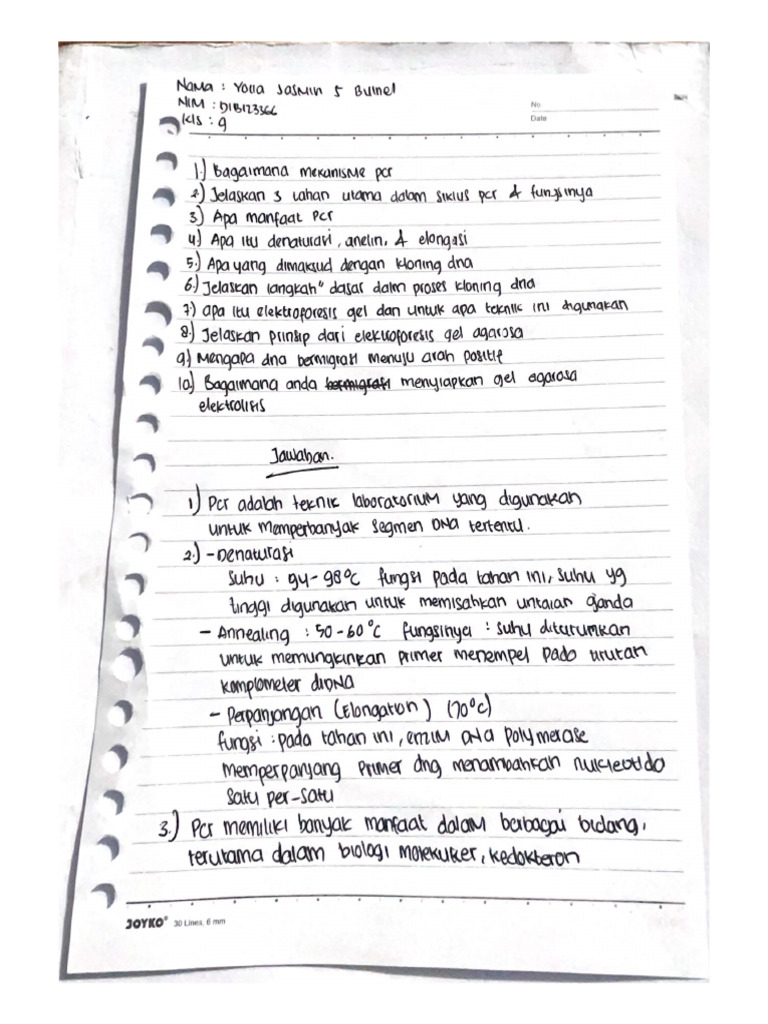 Nama : Yolla Jasmin S Buinel
NIM : D1B123366
Kls : 9
No
Date
1.) Bagaimana mekanisme pcr
2.) Jelaskan 3 tahan utama dalam siklus pcr & fungsinya
3.) Apa manfaat Pcr
4.) Apa itu denaturasi, anelin, & elongasi
5.) Apa yang dimaksud dengan kloning dna
6.) Jelaskan langkah" dasar dalm proses kloning dna
7.) apa itu elektroporesis gel dan untuk apa teknik ini digunakan
8.) Jelaskan prinsip dari elektroforesis gel agarosa
9.) Mengapa dna bermigrasi menuju arah positif
10.) Bagaimana anda bermigrasi menyiapkan gel agarosa
elektrolisis
Jawaban.
1.) Pcr adalah teknik laboratorium yang digunakan
untuk memperbanyak segmen DNA tertentu.
2.) - Denaturasi
Suhu : 94 - 98°C fungsi pada tahan ini, suhu yg
tinggi digunakan untuk memisahkan untaian ganda
- Annealing : 50 - 60°C fungsinya : suhu diturumkan
untuk memungkinkan primer menempel pado urutan
komplometer diDNA
- Perpanjongan (Elongation) (70°c)
fungsi : pada tahan ini, enzim DNA polymerase
memperpanyang primer dng menambahkan nukleotida
satu per-satu
3.) Pcr memiliki banyak manfaat dalam berbagai bidang,
terutama dalam biologi molekuker, kedokteron
JOYKO® 30 Lines, 6 mm